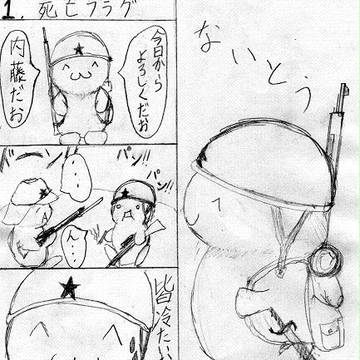 1. 死亡フラグ
今日から
よろしくだお
内藤だお
パン!!
パン!!
・・・
へ・・・
皆冷たい
ないとう